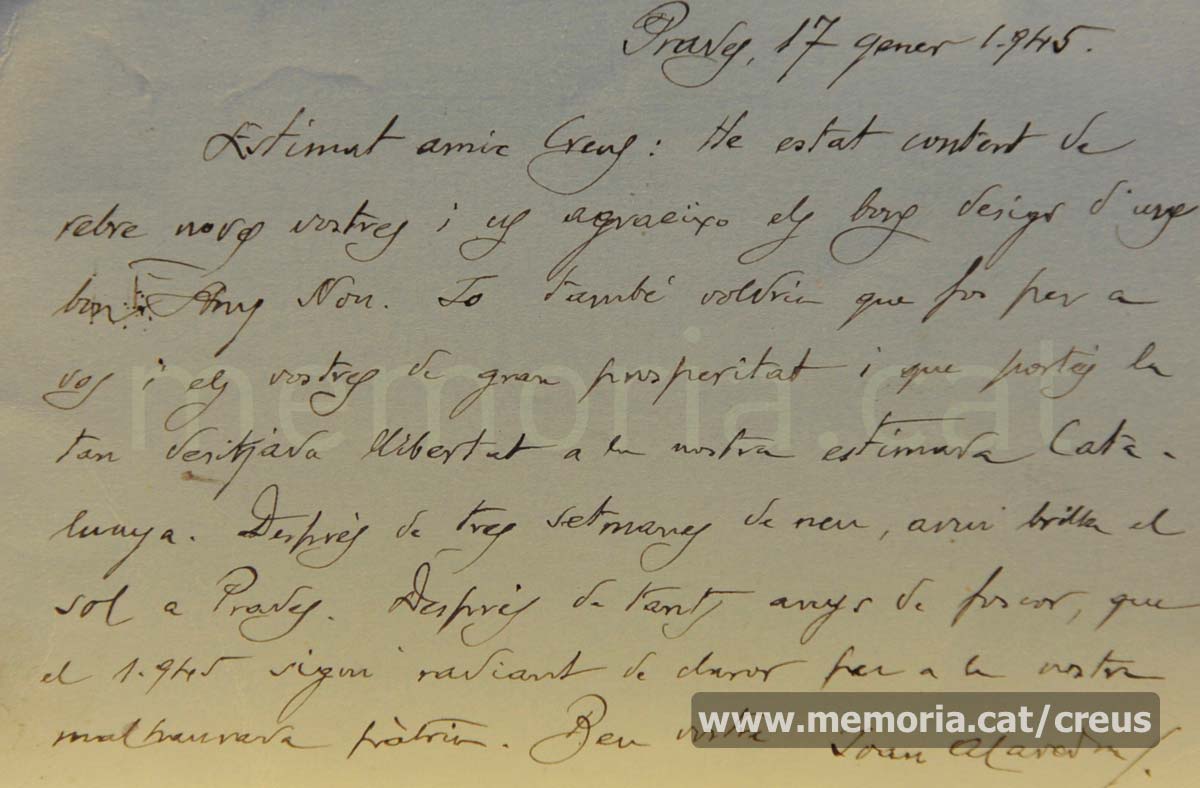 Prades, 17 gener 1.945.
Estimat amic Creus: He estat content de
rebre noves vostres i us agraeixo els bons desigs d'un
bon Any Nou. Jo també voldria que fos per a
vos i els vostres de gran prosperitat i que portés la
tan desitjada llibertat a la nostra estimada Cata-
lunya. Desprès de tres setmanes de neu, avui brilla el
sol a Prades. Desprès de tants anys de foscor, que
el 1.945 sigui radiant de claror per a la nostra
malhaurada pàtria. Ben vostre Joan Alavedra.
memoria.cat
www.memoria.cat/creus